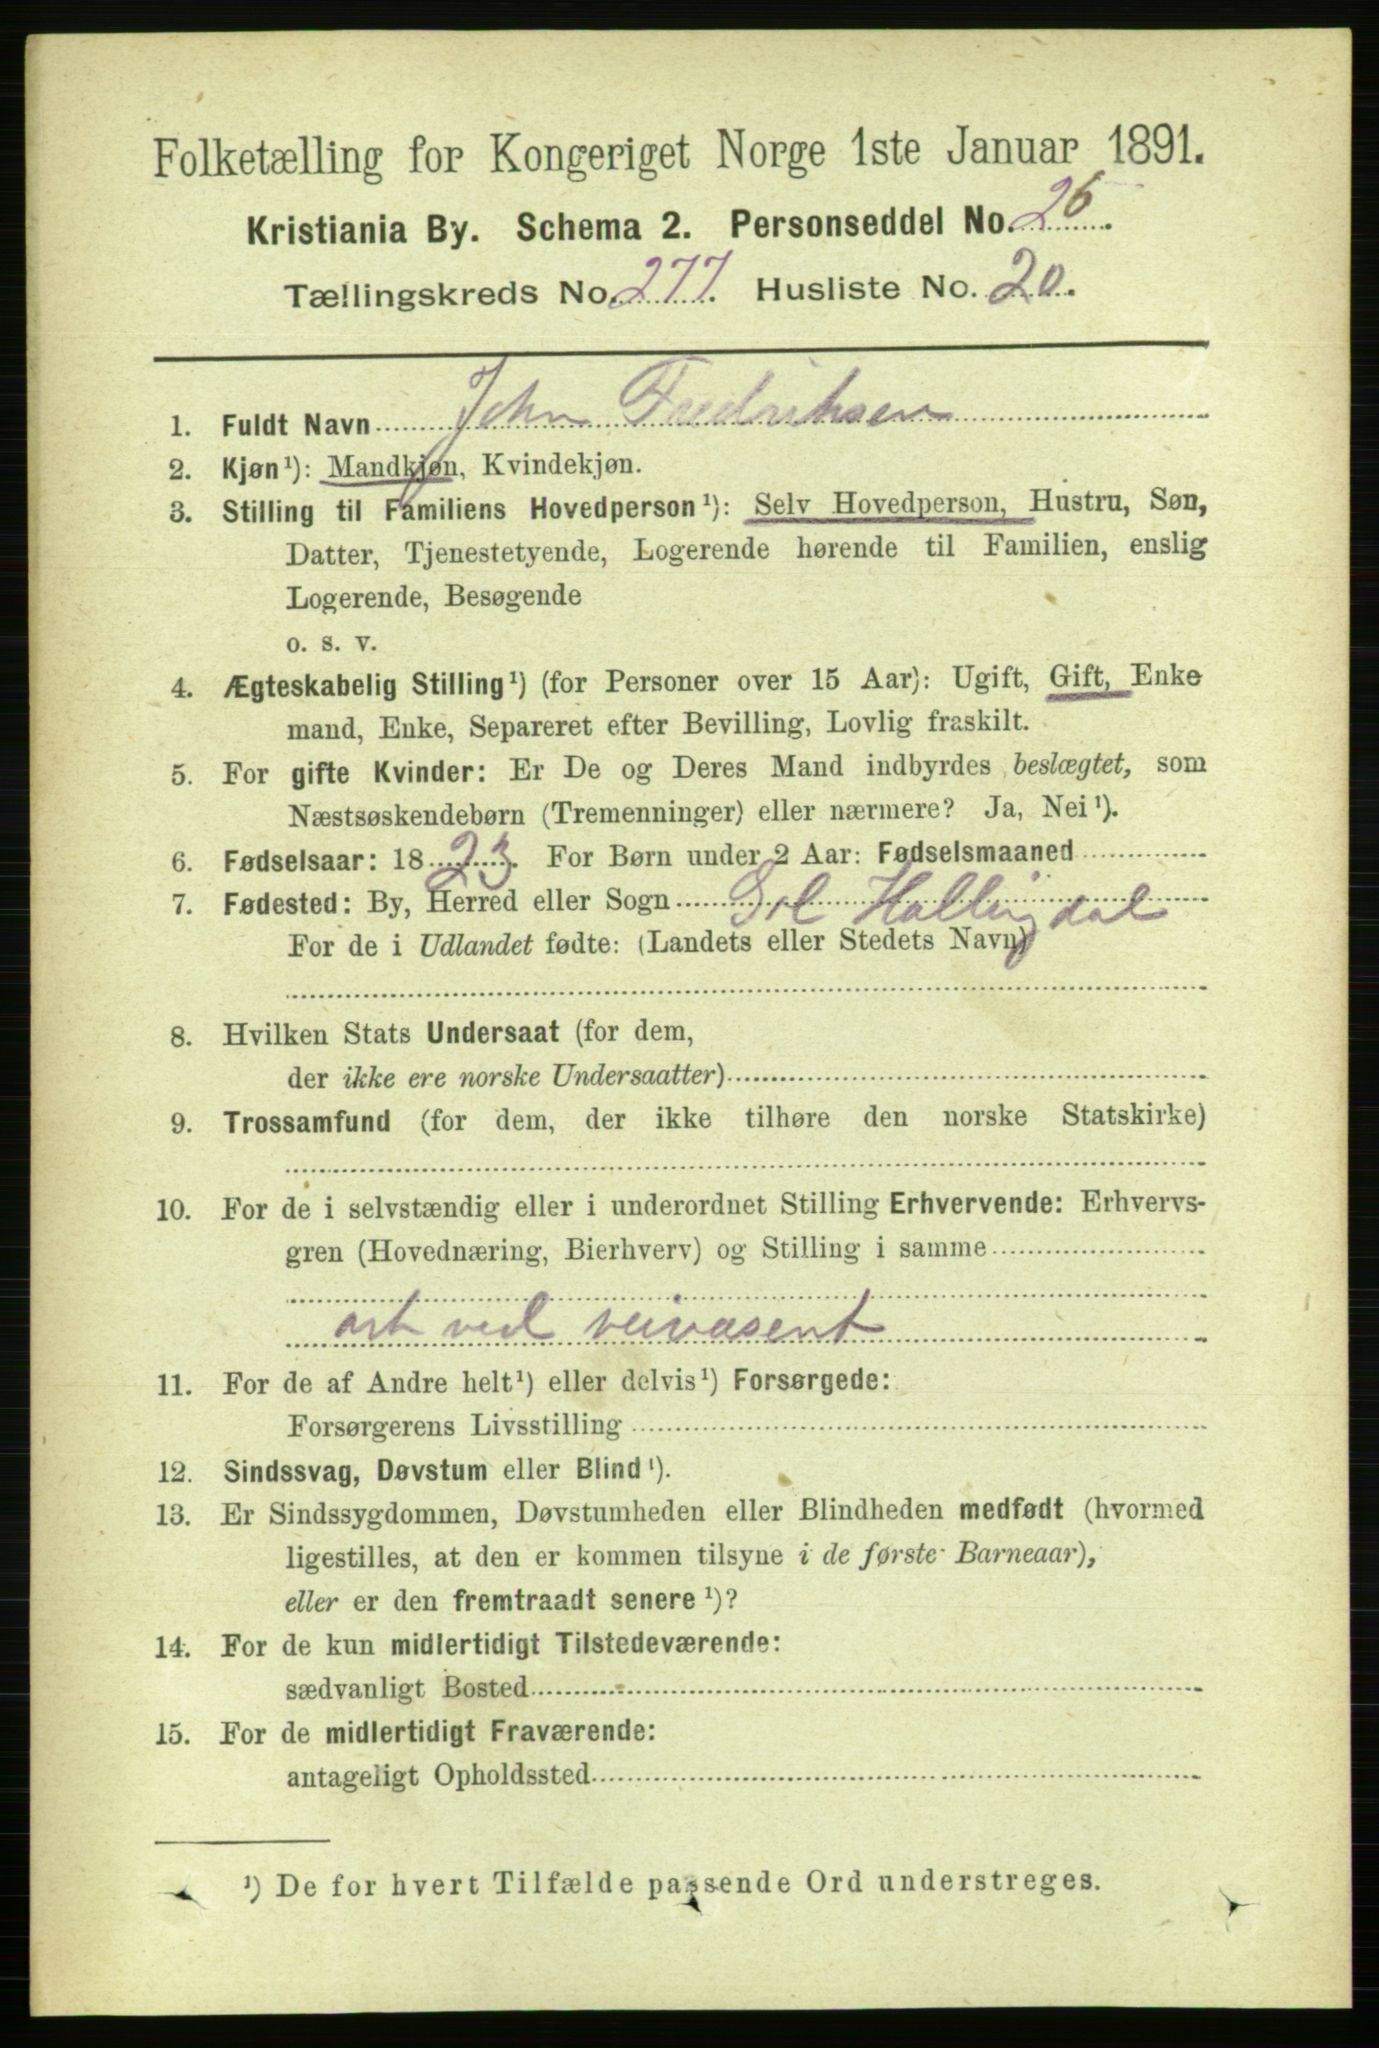 Folketælling for Kongeriget Norge 1ste Januar 1891.
Kristiania By. Schema 2. Personseddel No. 26.
Tællingskreds No. 277. Husliste No. 20.
1. Fuldt Navn John Fredriksen
2. Kjøn¹): Mandkjøn, Kvindekjøn.
3. Stilling til Familiens Hovedperson¹): Selv Hovedperson, Hustru, Søn,
Datter, Tjenestetyende, Logerende hørende til Familien, enslig
Logerende, Besøgende
o. s. v.
4. Ægteskabelig Stilling¹) (for Personer over 15 Aar): Ugift, Gift, Enke
mand, Enke, Separeret efter Bevilling, Lovlig fraskilt.
5. For gifte Kvinder: Er De og Deres Mand indbyrdes beslægtet, som
Næstsøskendebørn (Tremenninger) eller nærmere? Ja, Nei¹).
6. Fødselsaar: 1823. For Børn under 2 Aar: Fødselsmaaned
7. Fødested: By, Herred eller Sogn Hallingdal
For de i Udlandet fødte: (Landets eller Stedets Navn)
8. Hvilken Stats Undersaat (for dem,
der ikke ere norske Undersaatter)
9. Trossamfund (for dem, der ikke tilhøre den norske Statskirke)
10. For de i selvstændig eller i underordnet Stilling Erhvervende: Erhvervs-
gren (Hovednæring, Bierhverv) og Stilling i samme
ved veivæsent
11. For de af Andre helt¹) eller delvis¹) Forsørgede:
Forsørgerens Livsstilling
12. Sindssvag, Døvstum eller Blind¹).
13. Er Sindssygdommen, Døvstumheden eller Blindheden medfødt (hvormed
ligestilles, at den er kommen tilsyne i de første Barneaar),
eller er den fremtraadt senere¹)?
14. For de kun midlertidigt Tilstedeværende:
sædvanligt Bosted
15. For de midlertidigt Fraværende:
antageligt Opholdssted
¹) De for hvert Tilfælde passende Ord understreges.